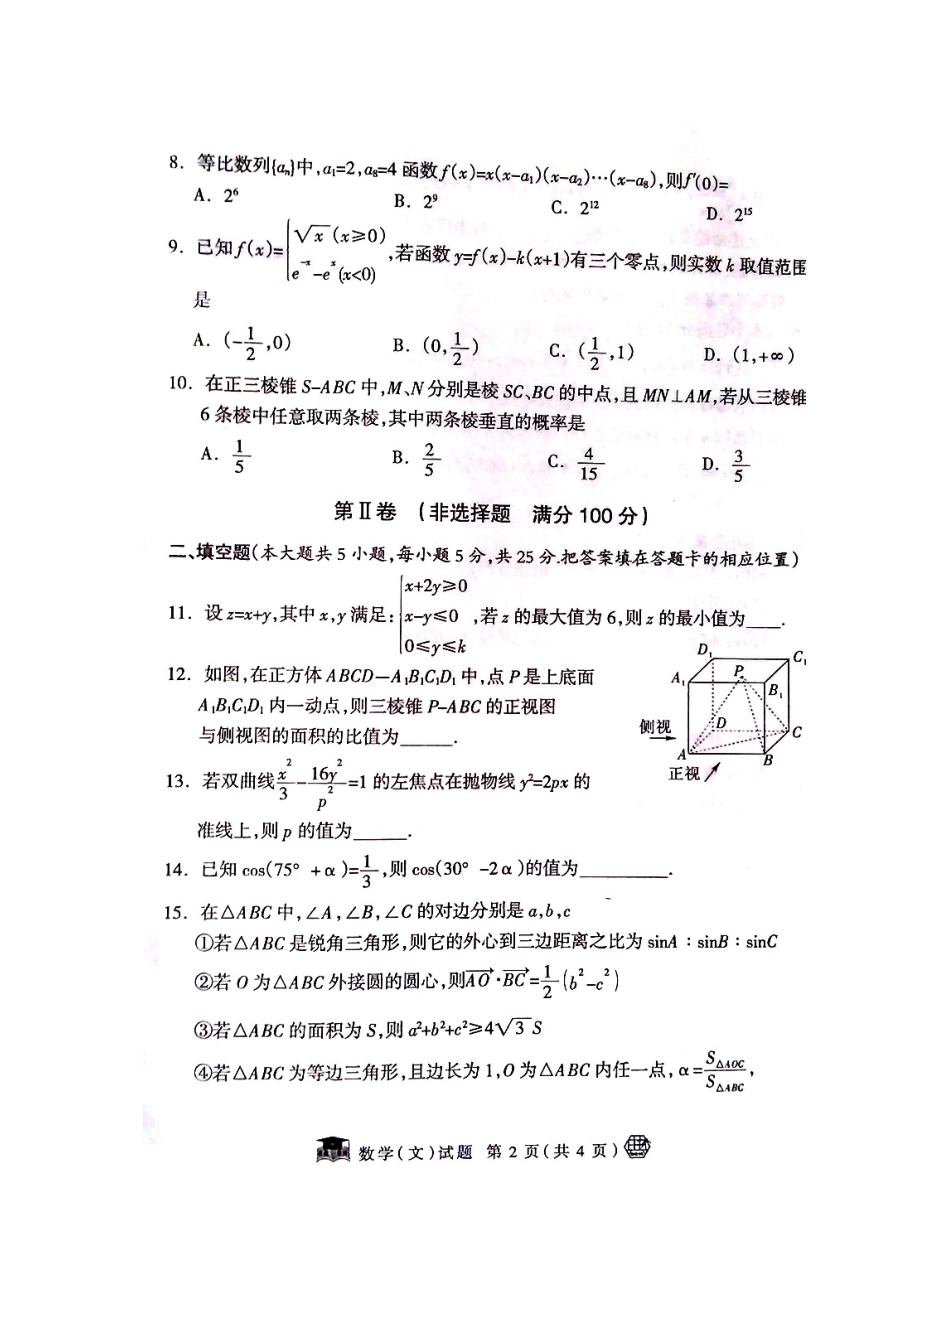 8. 等比数列{aₙ}中,a₁=2,a₈=4 函数f(x)=x(x-a₁)(x-a₂)…(x-a₈),则f'(0)=
A. 2⁶ B. 2⁹ C. 2¹² D. 2¹⁵
9. 已知f(x)={√x (x≥0) e⁻ˣ-eˣ(x<0) ,若函数y=f(x)-k(x+1)有三个零点,则实数k取值范围
是
A. (-1/2,0) B. (0,1/2) C. (1/2,1) D. (1,+∞)
10. 在正三棱锥S-ABC中,M、N分别是棱SC、BC的中点,且MN⊥AM,若从三棱锥
6条棱中任意取两条棱,其中两条棱垂直的概率是
A. 1/5 B. 2/5 C. 4/15 D. 3/5
第Ⅱ卷 (非选择题 满分100分)
二、填空题(本大题共5小题,每小题5分,共25分.把答案填在答题卡的相应位置)
11. 设z=x+y,其中x,y满足:{x+2y≥0 x-y≤0 0≤y≤k ,若z的最大值为6,则z的最小值为____.
12. 如图,在正方体ABCD—A₁B₁C₁D₁中,点P是上底面
A₁B₁C₁D₁内一动点,则三棱锥P-ABC的正视图
与侧视图的面积的比值为______.
D₁ C₁
A₁ P B₁
侧视 D C
A B
正视
13. 若双曲线x²/3-16y²/p²=1的左焦点在抛物线y²=2px的
准线上,则p的值为______.
14. 已知cos(75°+α)=1/3,则cos(30°-2α)的值为__________.
15. 在△ABC中,∠A,∠B,∠C的对边分别是a,b,c
①若△ABC是锐角三角形,则它的外心到三边距离之比为sinA:sinB:sinC
②若O为△ABC外接圆的圆心,则AO→·BC→=1/2(b²-c²)
③若△ABC的面积为S,则a²+b²+c²≥4√3 S
④若△ABC为等边三角形,且边长为1,O为△ABC内任一点,α=S△AOC/S△ABC,
数学(文)试题 第2页(共4页)